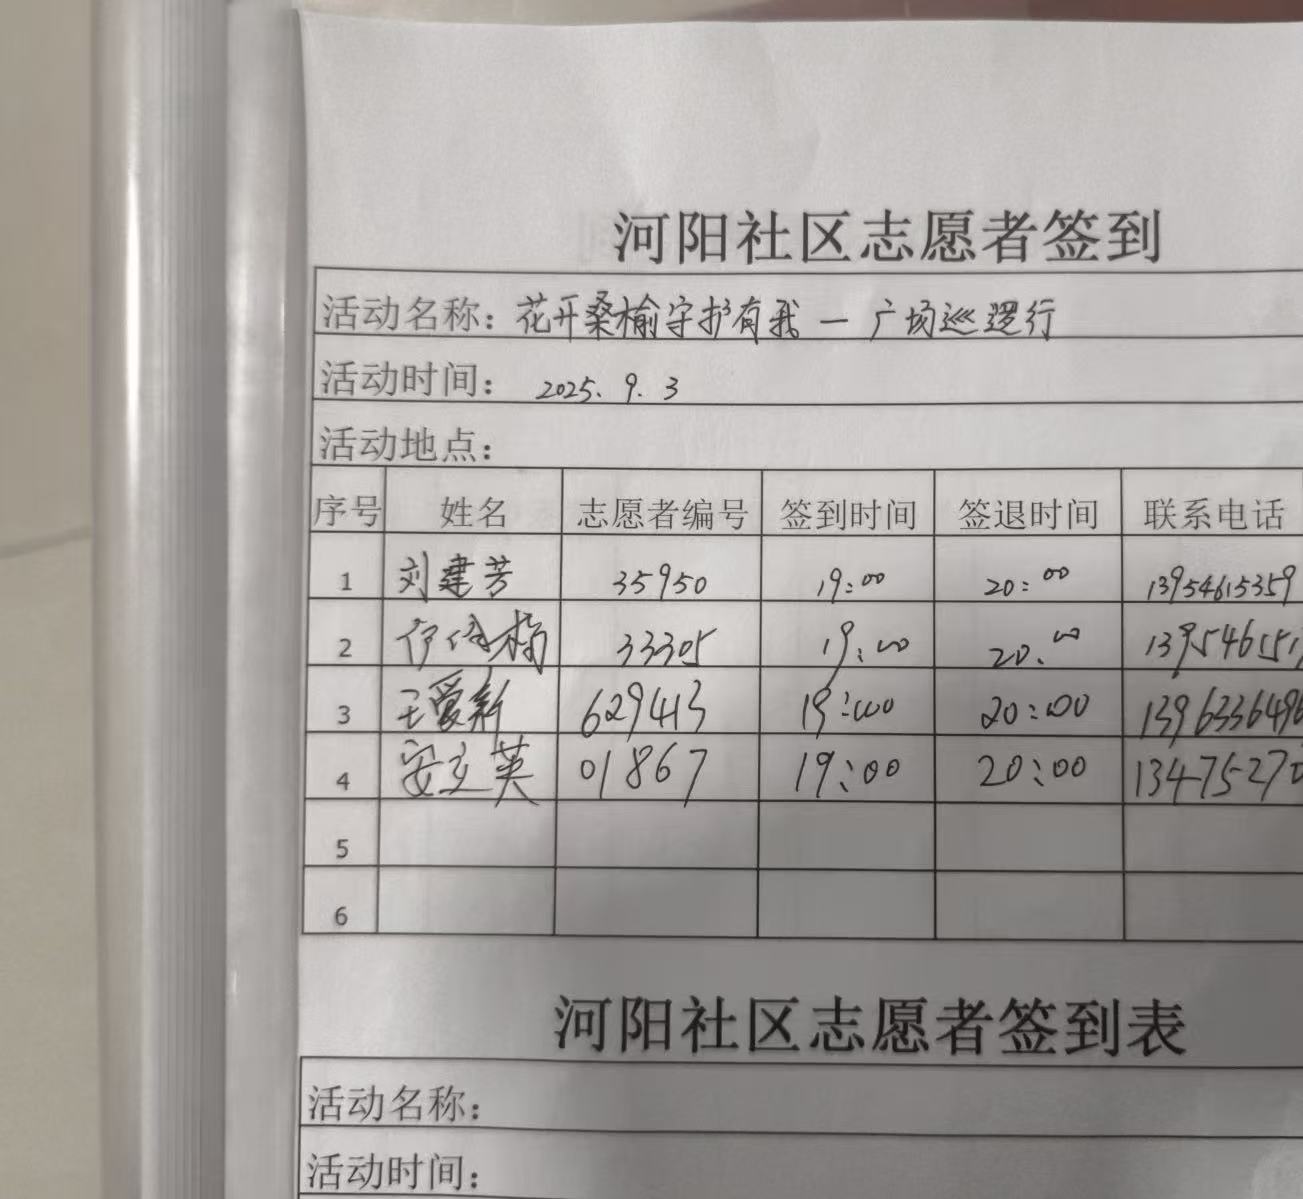 河阳社区志愿者签到
活动名称：花开桑榆守护有我—广场巡逻行
活动时间：2025.9.3
活动地点：
序号 姓名 志愿者编号 签到时间 签退时间 联系电话
1 刘建芳 35950 19:00 20:00 13954615359
2 33305 19:00 20:00 139546151
3 王爱新 629413 19:00 20:00 1396336496
4 安立英 01867 19:00 20:00 13475270
5
6
河阳社区志愿者签到表
活动名称：
活动时间：